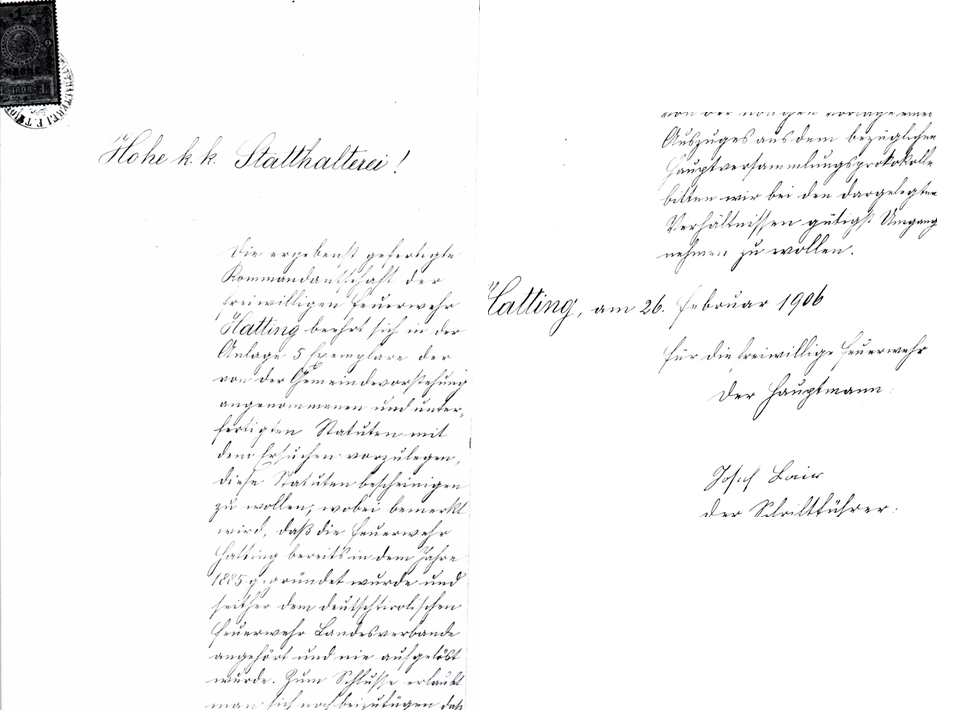 1
KRONE
1898
STATTHALTEREI F. TIROL
Hohe k. k. Statthalterei!
Die ergebenst gefertigte
Kommandantschaft der
freiwilligen Feuerwehr
Hatting beehrt sich in der
Anlage 5 Exemplare der
von der Gemeindevorstehung
angenommenen und unter-
fertigten Statuten mit
dem Ersuchen vorzulegen,
diese Statuten bescheinigen
zu wollen, wobei bemerkt
wird, daß die Feuerwehr
Hatting bereits in dem Jahre
1885 gegründet wurde und
seither dem deutschtirolischen
Feuerwehr Landesverbande
angehört und nie aufgelöst
wurde. Zum Schlusse erlaubt
man sich noch beizufügen daß
von der
Auszuges aus dem bezüglichen
Hauptversammlungsprotokolle
bitten wir bei den dargelegten
Verhältnissen gütigst Umgang
nehmen zu wollen.
Hatting, am 26. Februar 1906
für die freiwillige Feuerwehr
Der Hauptmann:
Josef
der Schriftführer: